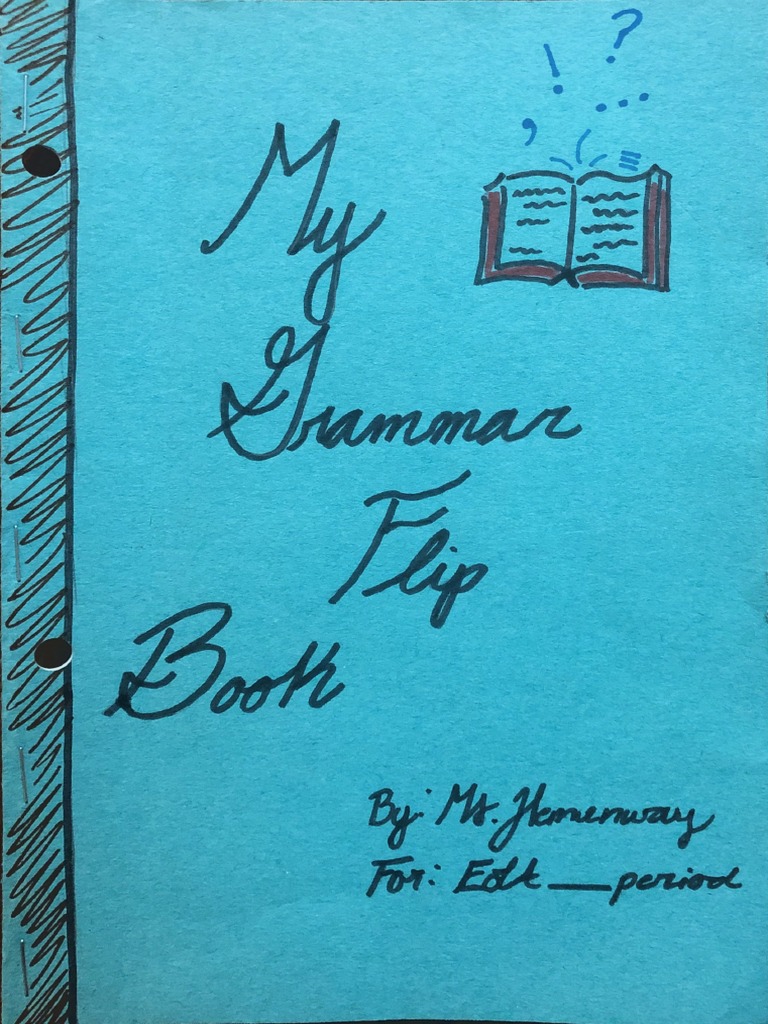 My
Grammar
Flip
Book
! ?
, ...
By: Ms. Hemenway
For: ___period